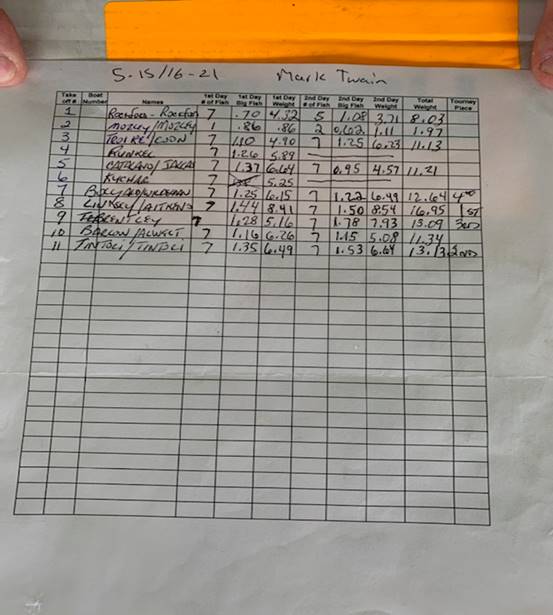 5-15/16-21 Mark Twain
Take off # Boat Number Names 1st Day # of Fish 1st Day Big Fish 1st Day Weight 2nd Day # of Fish 2nd Day Big Fish 2nd Day Weight Total Weight Tourney Place
1 7 .70 4.32 5 1.08 3.71 8.03
2 Mozley/Mozley 1 .86 .86 2 1.11 1.97
3 7 1.10 4.90 7 1.25 6.23 11.13
4 Runkel 7 1.26 5.89
5 7 1.37 6.64 7 0.95 4.57 11.21
6 7 5.25
7 7 1.25 6.15 7 1.22 6.49 12.64 4th
8 7 1.44 8.41 7 1.50 8.54 16.95 1st
9 7 1.28 5.16 7 1.78 7.93 13.09 3rd
10 7 1.16 6.26 7 1.15 5.08 11.34
11 7 1.35 6.49 7 1.53 6.64 13.13 2nd